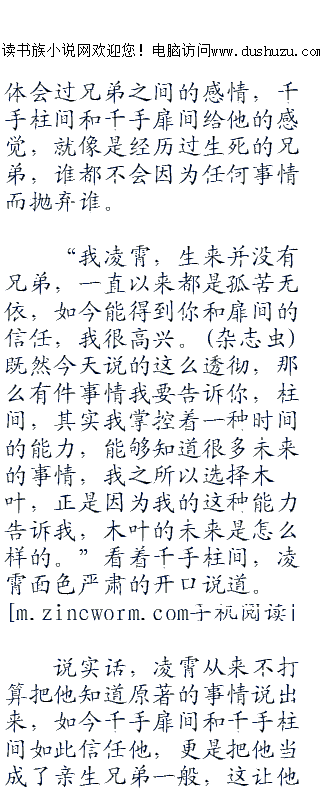 读书族小说网欢迎您！电脑访问www.dushuzu.com
体会过兄弟之间的感情，千
手柱间和千手扉间给他的感
觉，就像是经历过生死的兄
弟，谁都不会因为任何事情
而抛弃谁。
“我凌霄，生来并没有
兄弟，一直以来都是孤苦无
依，如今能得到你和扉间的
信任，我很高兴。(杂志虫)
既然今天说的这么透彻，那
么有件事情我要告诉你，柱
间，其实我掌控着一种时间
的能力，能够知道很多未来
的事情，我之所以选择木
叶，正是因为我的这种能力
告诉我，木叶的未来是怎么
样的。”看着千手柱间，凌
霄面色严肃的开口说道。
[m.zincworm.com手机阅读]
说实话，凌霄从来不打
算把他知道原著的事情说出
来，如今千手扉间和千手柱
间如此信任他，更是把他当
成了亲生兄弟一般，这让他